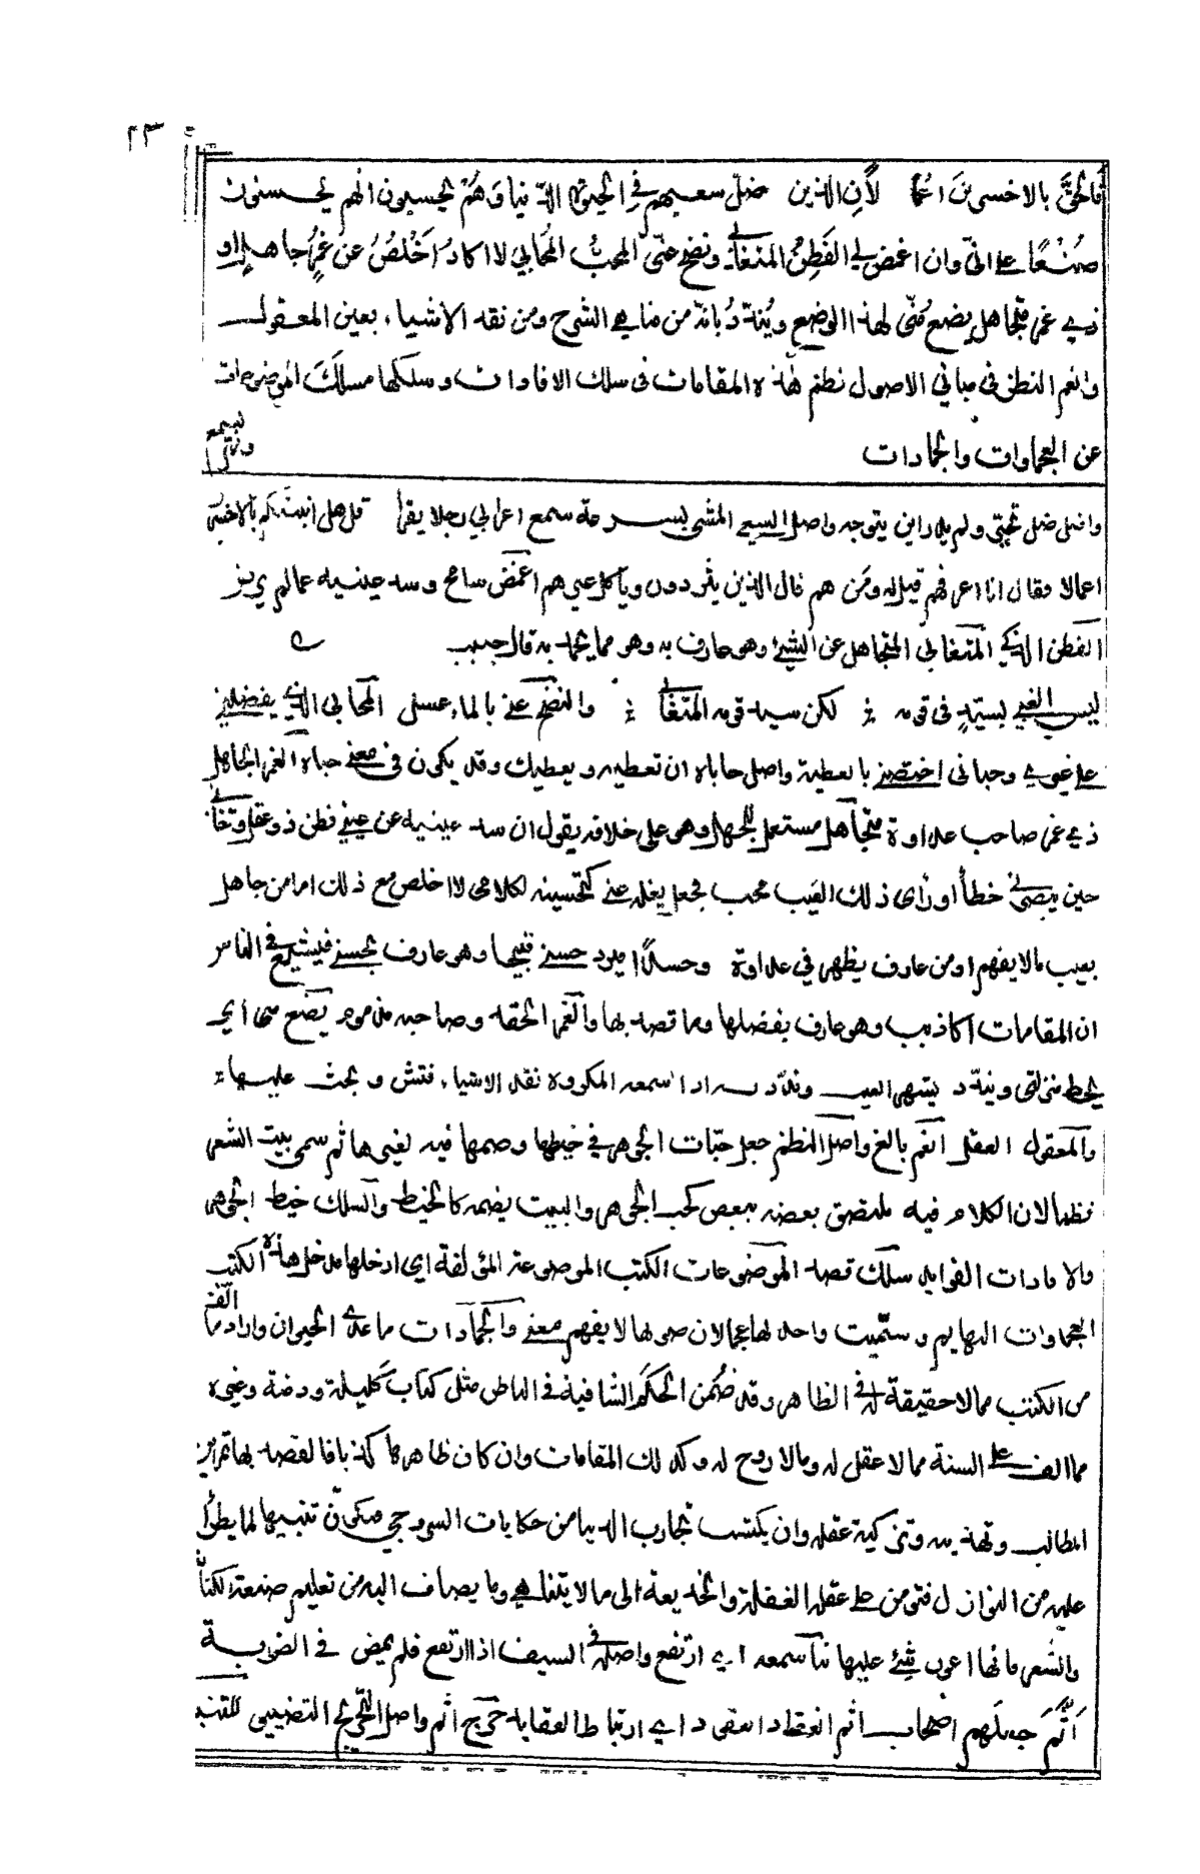 ٢٣
فألحق بالاخسرين اعمالا الذين ضل سعيهم في الحيوة الدنيا وهم يحسبون انهم يحسنون
صنعًا على انى وان اغمض لى الفطن المتغابى ونضح عنى المحب المحابي لا اكاد اخلص عن غمر جاهل او
ذي غمر متجاهل يضع منى لهذا الوضع ويندد بانه من مناهي الشرع ومن نقد الاشياء بعين المعقول
وانعم النظر فى مباني الاصول نظم هذه المقامات فى سلك الافادات وسلكها مسلك الموضوعات
عن العجماوات والجمادات
واضل ضل تحير ولم يدر اين يتوجه واصل السعي المشي بسرعة سمع اعرابي رجلا يقرأ قل هل انبئكم بالاخسرين
اعمالا فقال انا اعرفهم قيل له ومن هم قال الذين يثردون ويأكل غيرهم اغمض سامح وسد عينيه عما لم يرد
الفطن الذكي المتغابي المتجاهل عن الشيئ وهو عارف به وهو مما يحمد به قال حبيب
ليس الغبي بسيد فى قومه لكن سيد قومه المتغابى والنضح عنى بالماء غسل المحابي الذي يفضلني
على غيري وحبانى اختصني بالعطية واصل حاباه ان تعطيه ويعطيك وقد يكون فى معنى حباه الغمر الجاهل
ذي غمر صاحب عداوة متجاهل مستعمل للجهل وهو على خلافه يقول ان سد عينيه عن عيبي فطن ذو عقل وتغابى
حين يبصر لى خطأ او رأى ذلك العيب محب فجعل يغسله عني بتحسينه لكلامى لا اخلص مع ذلك اما من جاهل
يعيب مالا يفهم او من عارف يظهر في عداوة وحسدًا يرد حسني قبيحا وهو عارف بحسني فيشيع في الناس
ان المقامات اكاذيب وهو عارف بفضلها وما قصد بها والغمر الحقد وصاحبه مذموم يضع منى أي
يحط منزلتي ويندد يشهر العيب وندد به اذا اسمعه المكروه نقد الاشياء فتش وبحث عليها
والمعقول العقل انعم بالغ واصل النظم جعل حبات الجوهر في خيطها وضمها فيه لغيرها ثم سمى بيت الشعر
نظما لان الكلام فيه ملتصق بعضه ببعض كحب الجوهر والبيت يضمه كالخيط والسلك خيط الجوهر
والافادات الفوايد سلك قصد الموضوعات الكتب الموضوعة المؤلفة اى ادخلها مدخل هذه الكتب
العجماوات البهايم وسميت واحدها عجما لان صوتها لا يفهم معنى والجمادات ما عدى الحيوان واراد ما الف
من الكتب مما لا حقيقة له في الظاهر وقد ضمن الحكم الشافية فى الباطن مثل كتاب كليلة ودمنة وغيره
مما الف على السنة مما لا عقل له وما لا روح له وكذلك المقامات وان كان ظاهرها كذبا فالقصد بها تمرين
الطالب وتهذيبه وتزكية عقله وان يكتسب تجارب الدنيا من حكايات السروجي فيكون تنبيها لما يطرأ
عليه من النوازل فتى من على عقله الغفلة والخديعة الى ما لا يتناهي وما يضاف اليه من تعليم صنعة الكتابة
والشعر فانها اعون شئ عليها نبا سمعه اي ارتفع واصله في السيف اذا ارتفع فلم يمض في الضريبة
أثَّم جعلهم اصحاب اثم انعقاد العقود اي ارتباط العقايد حرج اثم واصل التحريج التضييق